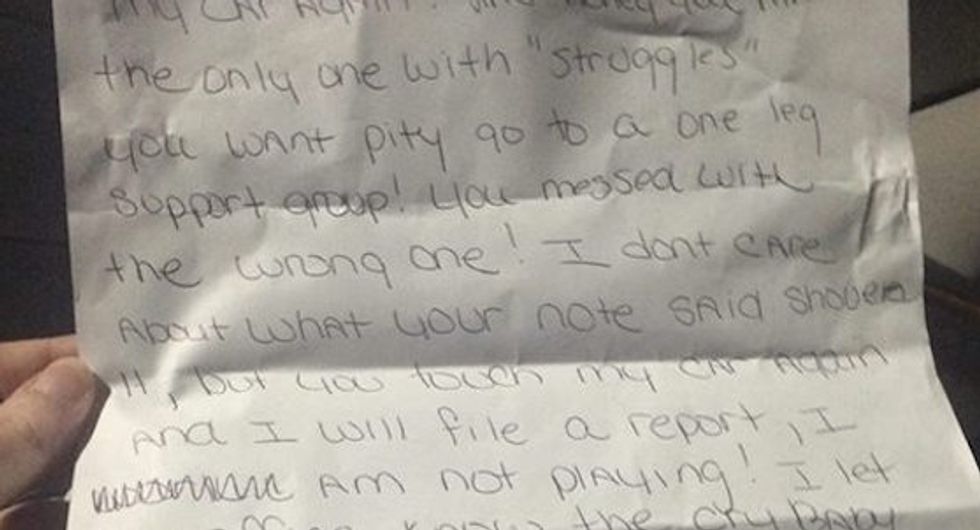 my CAR AgAin! And honey you
the only one with "struggles"
you wAnt pity go to a one leg
support group! You messed with
the wrong one! I dont cAre
About whAt your note sAid shovee
it, but you touch my cAr AgAin
And I will file a report, I
Am not plAying! I let
the cry bAby